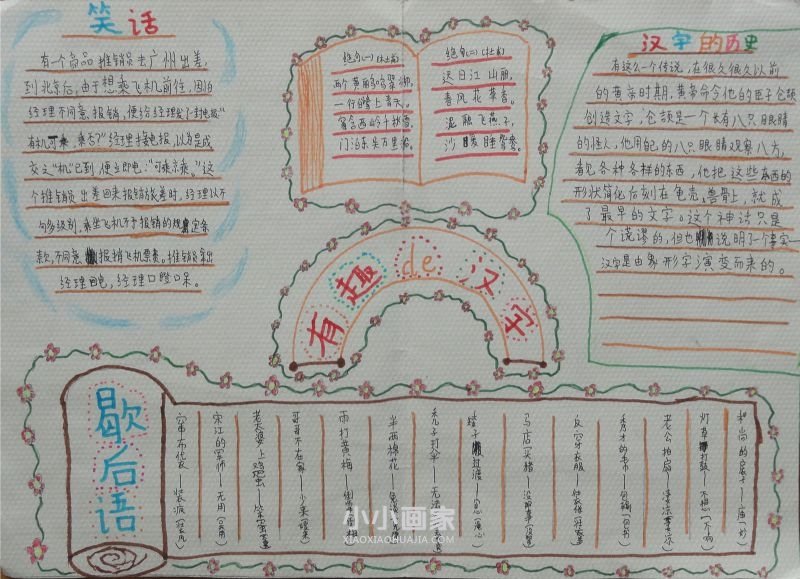 笑话
有一个商品推销员去广州出差,
到北京后,由于想乘飞机前往,因怕
经理不同意报销,便给经理发了一封电报:"
有机可乘,乘否?"经理接电报,以为是成
交之"机"已到,便立即电:"可乘就乘。"这
个推销员出差回来报销旅差时,经理以不
够级别,乘坐飞机不予报销的规定条
款,不同意报销飞机票费。推销员拿出
经理回电,经理目瞪口呆。
绝句(一)(杜甫)
两个黄鹂鸣翠柳,
一行白鹭上青天。
窗含西岭千秋雪,
门泊东吴万里船。
绝句(二)(杜甫)
迟日江山丽,
春风花草香。
泥融飞燕子,
沙暖睡鸳鸯。
汉字的历史
有这么一个传说,在很久很久以前
的黄帝时期,黄帝命令他的臣子仓颉
创造文字,仓颉是一个长有八只眼睛
的怪人,他用自己的八只眼睛观察八方,
看见各种各样的东西,他把这些东西的
形状简化后刻在龟壳、兽骨上,就成
了最早的文字。这个神话只是
个荒谬的,但也说明了一个事实—
汉字是由象形字演变而来的。
有趣de汉字
歇后语
和尚的房子——庙(妙)
灯草打鼓——不想(不响)
老公拍扇——凄凉
秀才的手巾——包输(包书)
反穿衣服——
马店买猪——没那事
秃子打伞——无法
哥哥不在家——少来
老婆婆上鸡
宋江的军师——无用(吴用)
小小画家
XIAOXIAOHUAJIA.COM